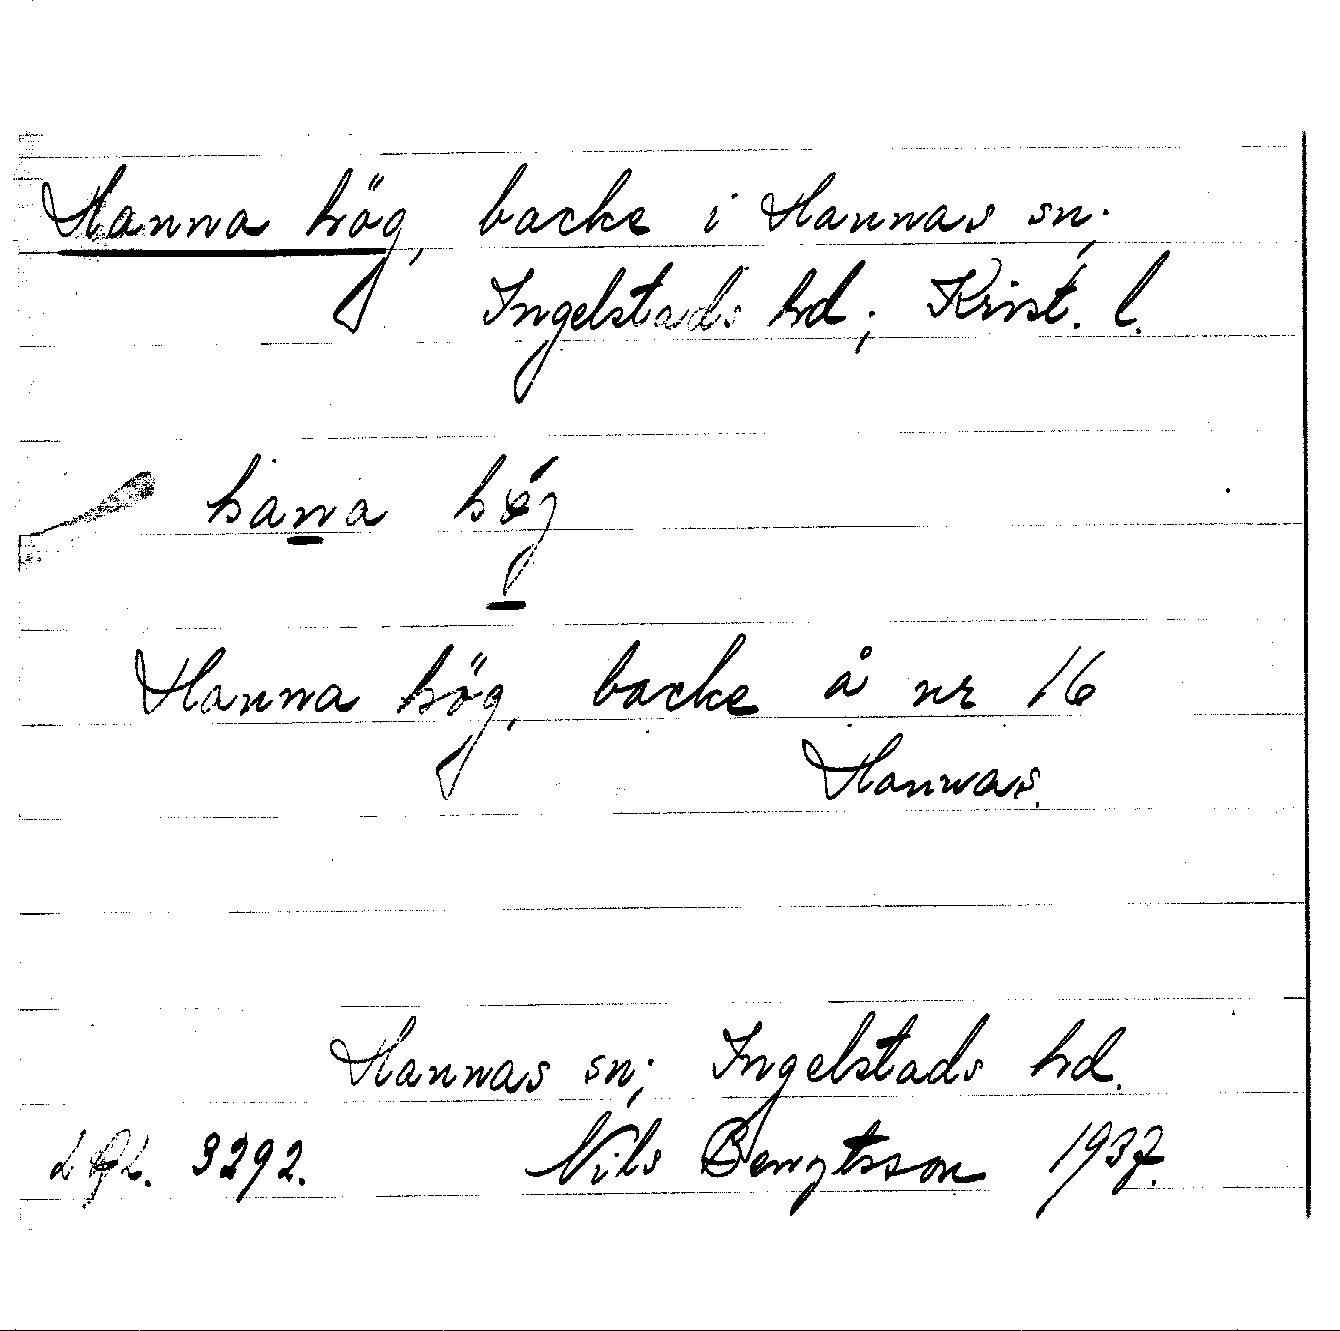 Hanna hög, backe i Hannas sn;
Ingelstads hd; Krist. l.
hana hǿg
Hanna hög, backe å nr 16
Hannas.
Hannas sn; Ingelstads hd.
3292. Nils Bengtsson 1937.